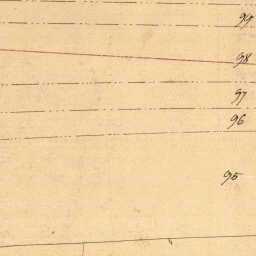 99
98
97
96
95